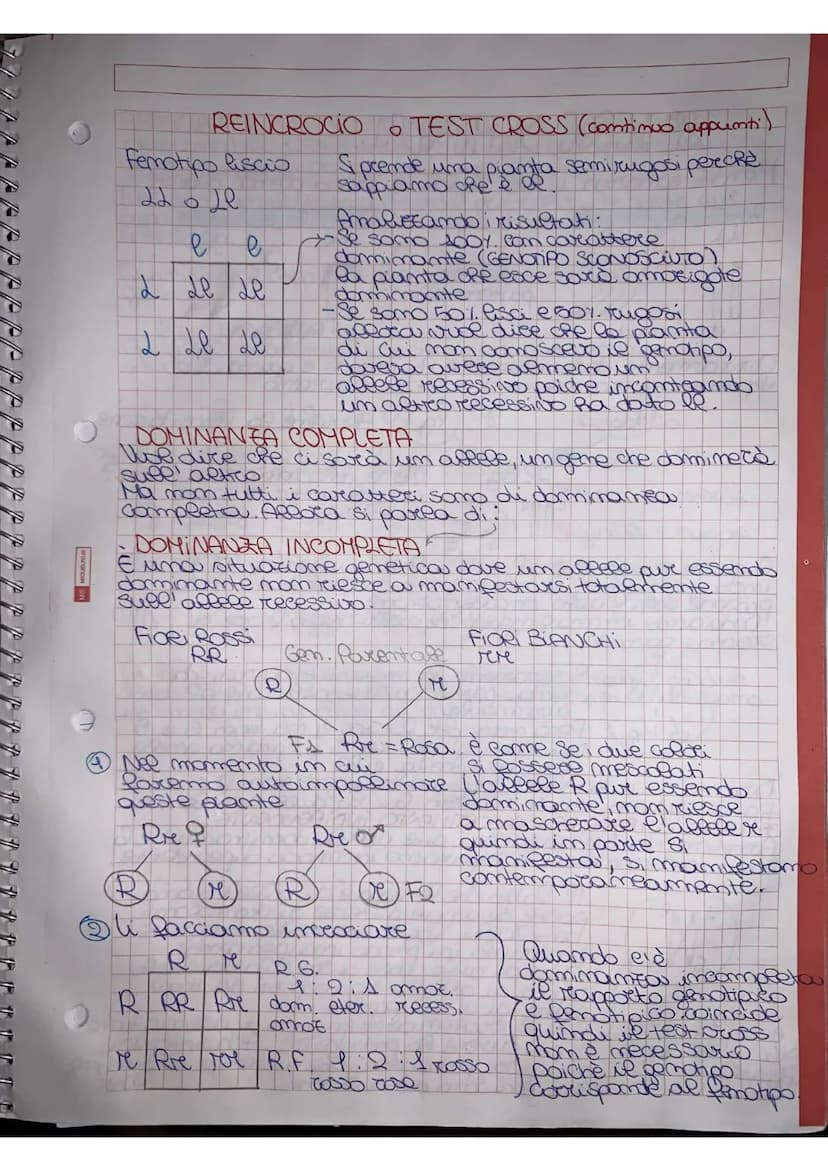 REINCROCIO o TEST CROSS (continuo appunti)
Fenotipo liscio
LL o Ll
l l
L Ll Ll
L Ll Ll
Si prende una pianta semi rugosi perchè
sappiamo che è ll.
Analizzando i risultati:
-Se sono 100% con carattere
dominante (GENOTIPO SCONOSCIUTO)
la pianta che esce sarà omozigote
dominante
-Se sono 50% lisci e 50% rugosi
allora vuol dire che la pianta
di cui non conoscevo il genotipo,
doveva avere almeno un
allele recessivo poichè incontrando
un altro recessivo ha dato ll.
DOMINANZA COMPLETA
Vuol dire che ci sarà un allele, un gene che dominerà
sull'altro
Ma non tutti i caratteri sono di dominanza
completa. Allora si parla di:
· DOMINANZA INCOMPLETA
È una situazione genetica dove un allele pur essendo
dominante non riesce a manifestarsi totalmente
sull'allele recessivo.
Fiori Rossi
RR
Gen. Parentale
FIORI BIANCHI
rr
R r
F1 Rr = Rosa
è come se i due colori
si fossero mescolati
L'allele R pur essendo
dominante, non riesce
a mascherare l'allele r
quindi in parte si
manifesta, si manifestano
contemporaneamente.
1 Nel momento in cui
faremo autoimpollinare
queste piante
Rr ♀ Rr ♂
R r R r F2
2 li facciamo incrociare
R r
R RR Rr
r Rr rr
R G.
1 : 2 : 1 omoz.
dom. eter. recess.
omoz
R.F. 1 : 2 : 1 rosso
rosso rosa
Quando c'è
dominanza incompleta
il rapporto genotipico
e fenotipico coincide
quindi il test cross
non è necessario
poichè il genotipo
corrisponde al fenotipo.